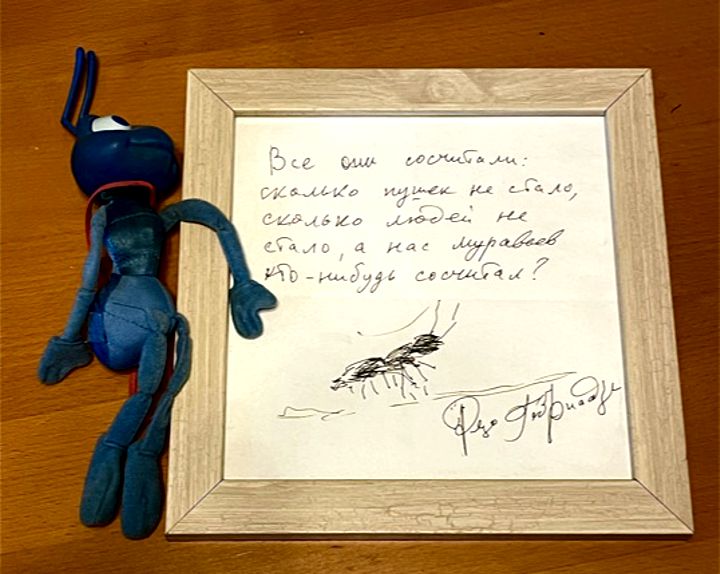 Все они сосчитали:
сколько пушек не стало,
сколько людей не
стало, а нас муравьев
кто-нибудь сосчитал?
Резо Габриадзе